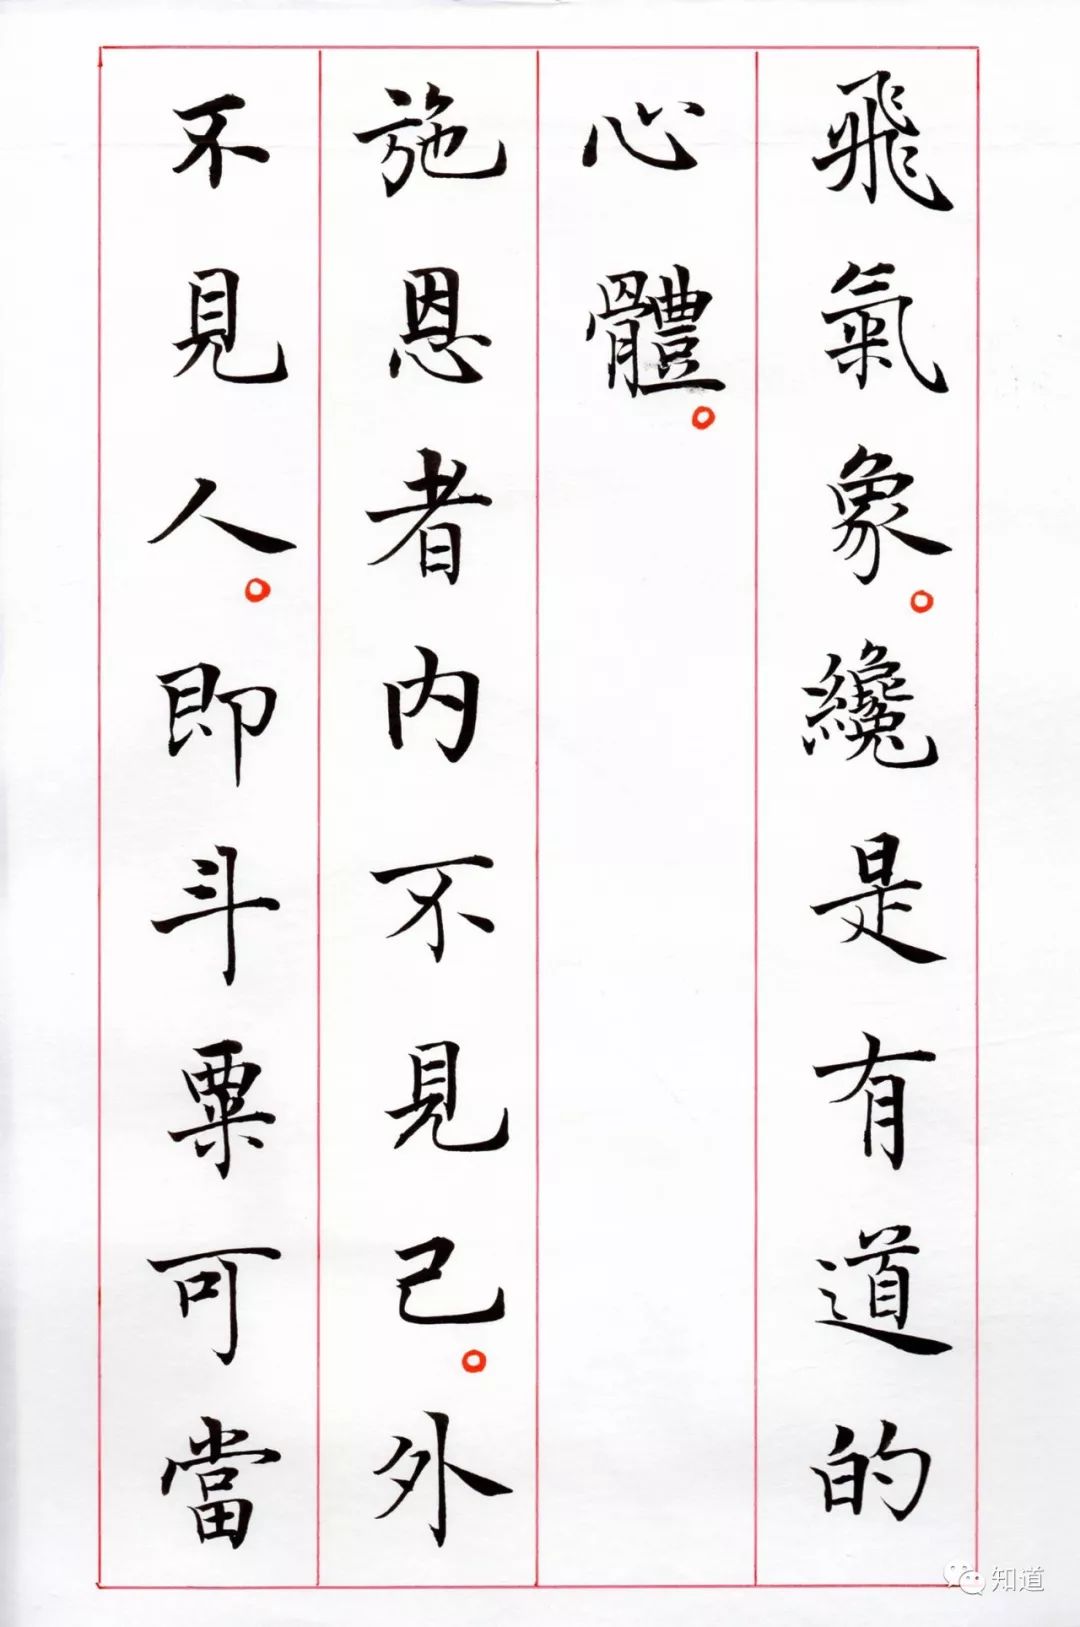 飛氣象。纔是有道的
心體。
施恩者内不見己。外
不見人。即斗粟可當
知道